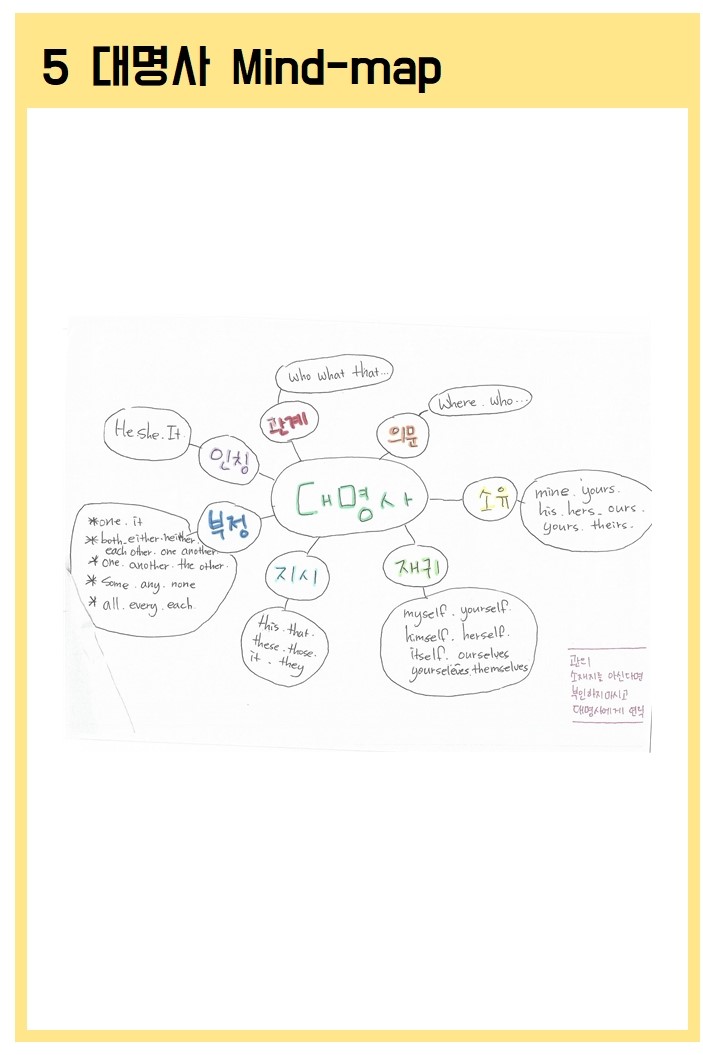 5 대명사 Mind-map
who what that...
Where . who...
관계
의문
He she. It.
인칭
대명사
소유
mine . yours.
his . hers . ours .
yours . theirs .
부정
*one . it
* both . either . neither.
each other . one another.
* one . another . the other.
* some . any . none
* all . every . each.
지시
this . that .
these . those.
it . they
재귀
myself . yourself.
himself . herself.
itself . ourselves
yourselves, themselves
관의
소재지는 아신다면
부인하지마시고
대명사에게 연